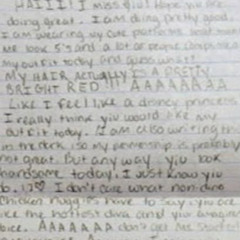 HAIII! I miss you! Hope you are
doing great. I am doing pretty good.
I am wearing my cute platforms boots make
me look 5'5 and a lot of people
my outfit today and guess what!
MY HAIR ACTUALLY IS A PRETTY
BRIGHT RED!!! AAAAAAAA
Like I feel like a disney princess
I really think you would like my
outfit today. I am also writing this
in the dark, so my penmanship is probably
not great. But any way you look
handsome today. I just know you
do. I don't care what non dino
chicken nuggets have to say you are
the hottest diva and you
AAAAAAA don't get me started